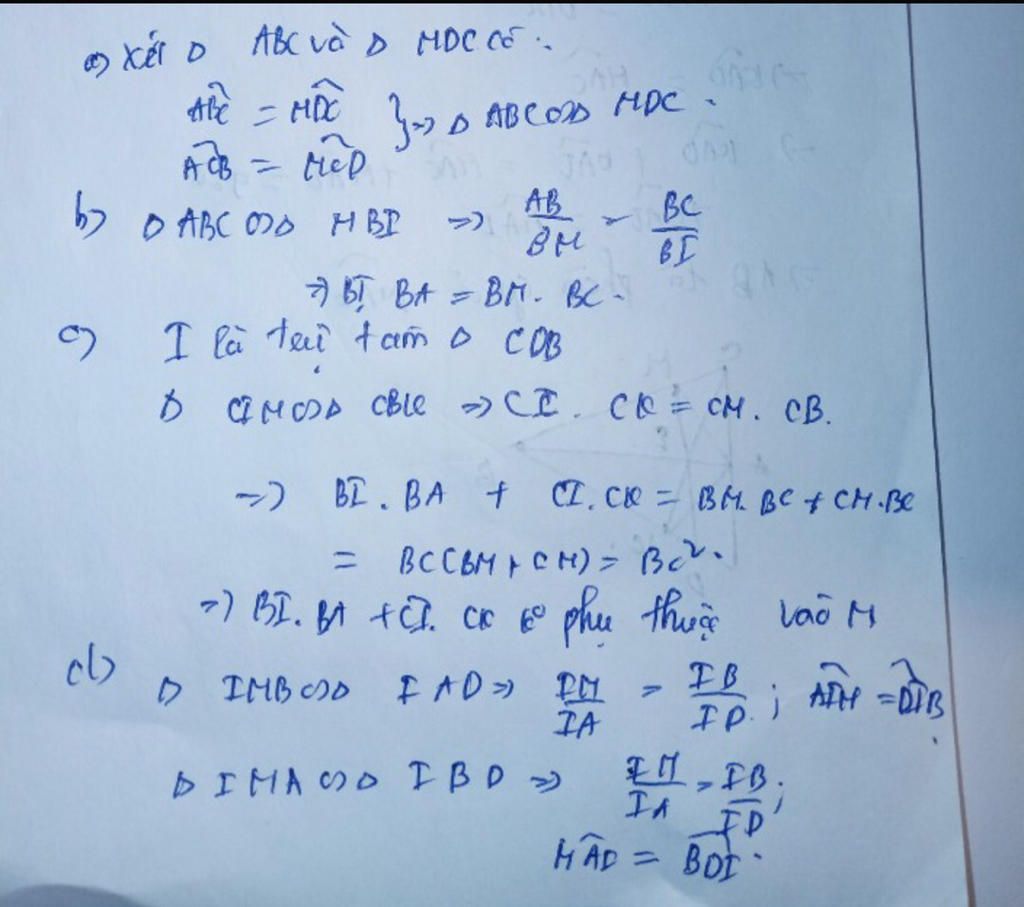 a) Xét Δ ABC và Δ MDC có:
ABC = MDC } => Δ ABC ∽ Δ MDC.
ACB = MCD
b) Δ ABC ∽ Δ MBI => AB/BM = BC/BI
=> BI. BA = BM. BC.
c) I là trực tâm Δ CDB
Δ CIM ∽ Δ CBK => CI. CK = CM. CB.
=> BI. BA + CI. CK = BM. BC + CM. BC
= BC(BM + CM) = BC².
=> BI. BA + CI. CK ko phụ thuộc vào M
d) Δ IMB ∽ Δ IAD => IM/IA = IB/ID ; AIM = DIB.
Δ IMA ∽ Δ IBD => IM/IA = IB/ID ;
MAI = BDI.